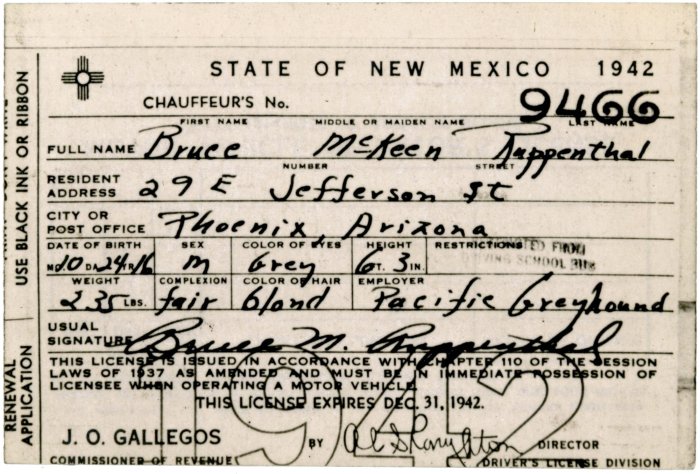 STATE OF NEW MEXICO 1942
CHAUFFEUR'S No. 9466
FIRST NAME MIDDLE OR MAIDEN NAME LAST NAME
FULL NAME Bruce McKeen Ruppenthal
NUMBER STREET
RESIDENT ADDRESS 29 E Jefferson St
CITY OR POST OFFICE Phoenix, Arizona
DATE OF BIRTH SEX COLOR OF EYES HEIGHT RESTRICTIONS
MO. 10 DA. 24 YR. 16 M Grey 6 FT. 3 IN. FROM
DRIVING SCHOOL
WEIGHT COMPLEXION COLOR OF HAIR EMPLOYER
235 LBS. fair blond Pacific Greyhound
USUAL SIGNATURE Bruce M. Ruppenthal
THIS LICENSE IS ISSUED IN ACCORDANCE WITH CHAPTER 110 OF THE SESSION
LAWS OF 1937 AS AMENDED AND MUST BE IN IMMEDIATE POSSESSION OF
LICENSEE WHEN OPERATING A MOTOR VEHICLE.
THIS LICENSE EXPIRES DEC. 31, 1942.
1942
J. O. GALLEGOS BY DIRECTOR
COMMISSIONER OF REVENUE DRIVER'S LICENSE DIVISION
USE BLACK INK OR RIBBON
RENEWAL APPLICATION